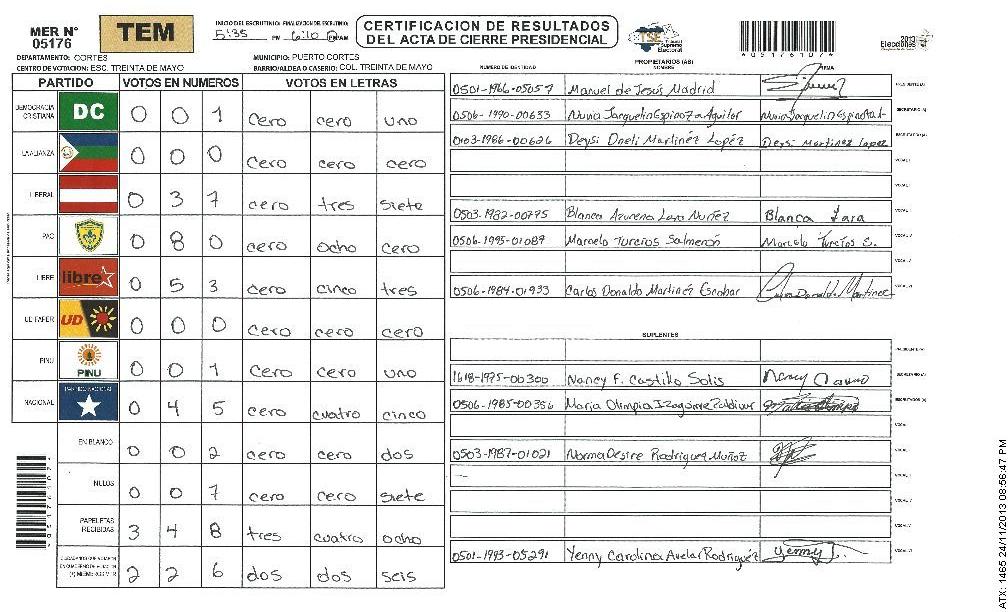 MER N° 05176
TEM
INICIO DEL ESCRUTINIO: FINALIZACION DEL ESCRUTINIO:
5:35 PM 6:10 PM/AM
CERTIFICACION DE RESULTADOS
DEL ACTA DE CIERRE PRESIDENCIAL
TSE Tribunal Supremo Electoral
2013 Elecciones
DEPARTAMENTO: CORTES
MUNICIPIO: PUERTO CORTES
CENTRO DE VOTACION: ESC. TREINTA DE MAYO
BARRIO/ALDEA O CASERIO: COL. TREINTA DE MAYO
PARTIDO VOTOS EN NUMEROS VOTOS EN LETRAS
DEMOCRACIA CRISTIANA DC 0 0 1 cero cero uno
LA ALIANZA 0 0 0 cero cero cero
LIBERAL 0 3 7 cero tres siete
PAC 0 8 0 cero ocho cero
LIBRE libre 0 5 3 cero cinco tres
UD FAPER UD 0 0 0 cero cero cero
PINU PINU 0 0 1 cero cero uno
NACIONAL PARTIDO NACIONAL 0 4 5 cero cuatro cinco
EN BLANCO 0 0 2 cero cero dos
NULOS 0 0 7 cero cero siete
PAPELETAS RECIBIDAS 3 4 8 tres cuatro ocho
2 2 6 dos dos seis
PROPIETARIOS (AS)
NUMERO DE IDENTIDAD NOMBRE FIRMA
0501-1966-05057 Manuel de Jesús Madrid
0506-1990-00633 Nuvia Jacquelin Espinoza Aguilar
0103-1986-00626 Deysi Oneli Martinez Lopéz Deysi Martinez Lopez
0503-1982-00775 Blanca Azucena Lara Nuñez Blanca Lara
0506-1995-01087 Marcelo Turcios Salmerón Marcelo Turcios S.
0506-1984-01933 Carlos Donaldo Martinéz Escobar Carlos Donaldo Martinez
SUPLENTES
1618-1975-00300 Nancy F. Castillo Solis
0506-1985-00356 Maria Olimpia Izaguirre Zaldivar
0503-1987-01021 Norma Desire Rodriguez Muñoz
0501-1993-05291 Yenny Carolina Avelar Rodriguéz Yenny
ATX: 1465 24/11/2013 08:56:47 PM